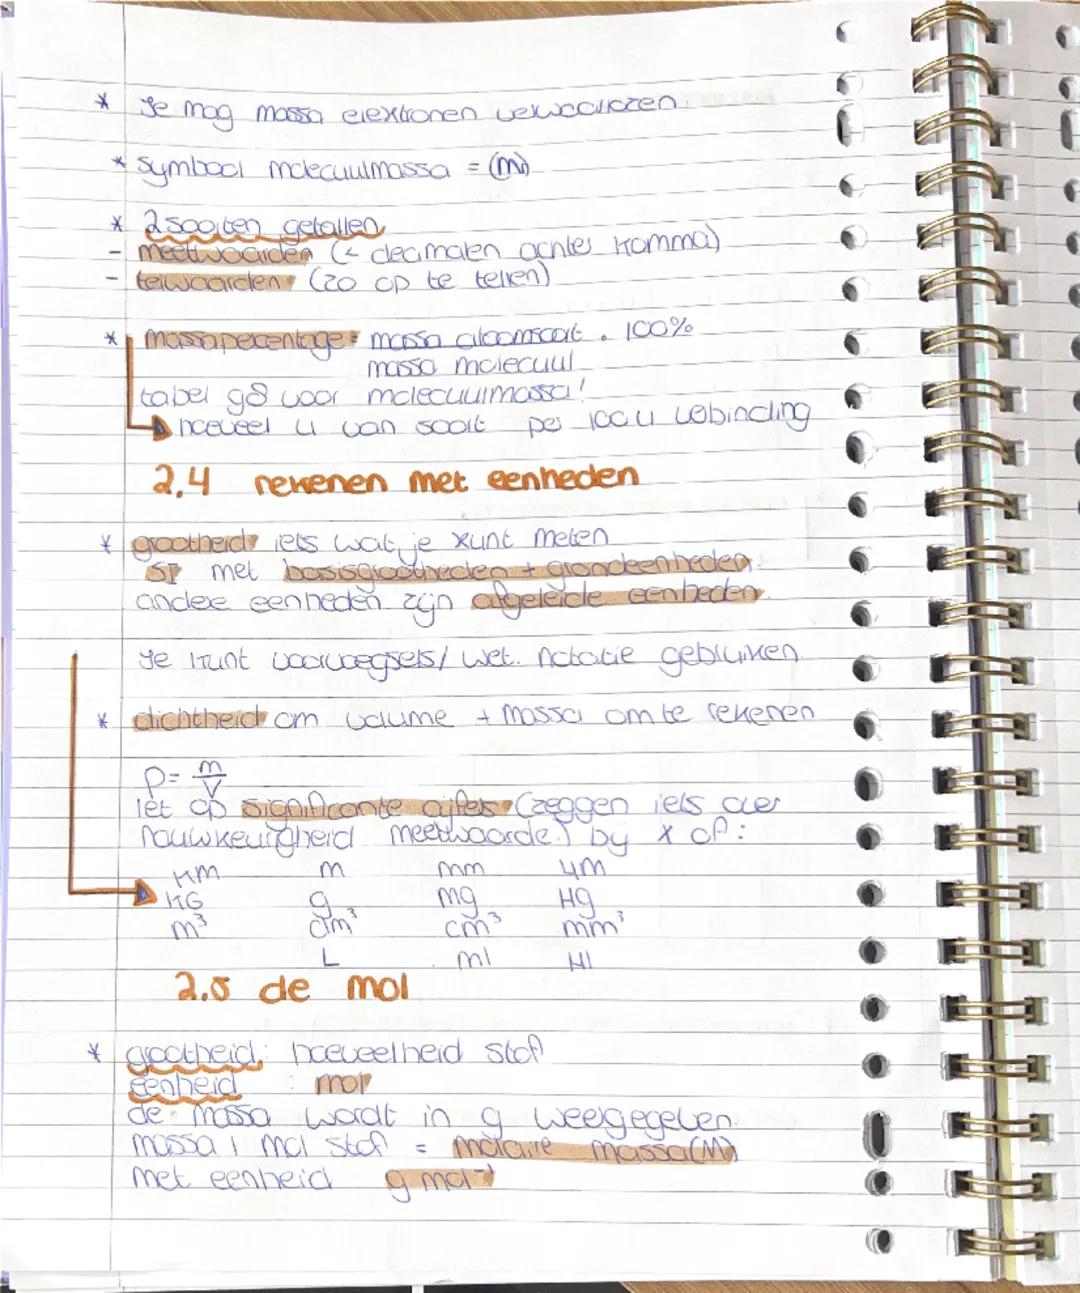 * Je mag massa elektronen verwaarlozen
* symbool molecuulmassa = (m)
* 2 soorten getallen
- meetwaarden (< decimalen achter komma)
- telwaarden (zo op te tellen)
* massapercentage = massa atoomsoort . 100%
massa molecuul
tabel 98 voor molecuulmassa!
hoeveel u van soort per 100 u verbinding
2.4 rekenen met eenheden
* grootheid iets wat je kunt meten
SI met basisgrootheden + grondeenheden.
andere eenheden zijn afgeleide eenheden
Je kunt voorvoegsels / wet. notatie gebruiken
* dichtheid om volume + massa om te rekenen
ρ = m
V
let op significante cijfers (zeggen iets over
nauwkeurigheid meetwaarde.) bij x of :
KM m mm μm
KG g mg μg
m³ dm³ cm³ mm³
L ml μl
2.5 de mol
* grootheid: hoeveelheid stof
eenheid : mol
de massa wordt in g weergegeven
massa 1 mol stof = molaire massa (M)
met eenheid g mol⁻¹